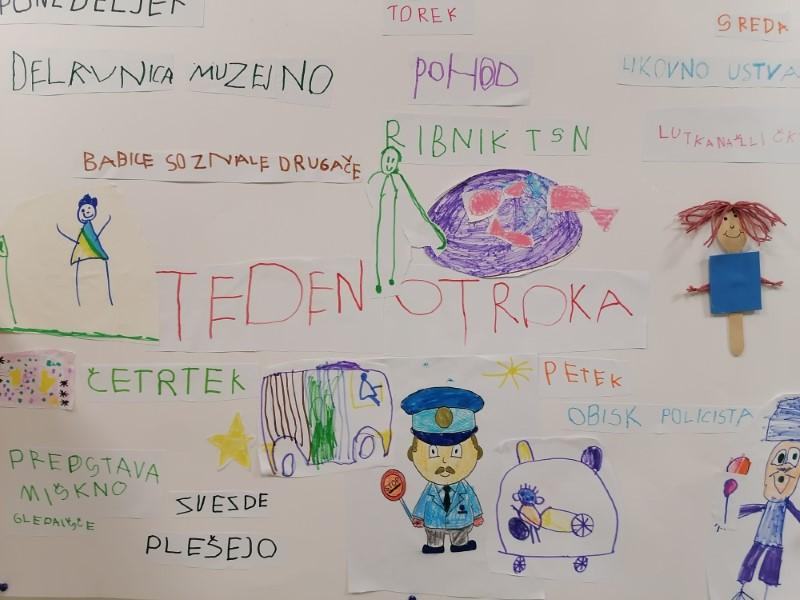 PONEDELJEK
TOREK
SREDA
DELAVNICA MUZEJNO
POHOD
LIKOVNO USTVA
RIBNIK TSN
BABICE SO ZNALE DRUGAČE
TEDEN OTROKA
ČETRTEK
PETEK
OBISK POLICISTA
PREDSTAVA
MIŠKNO
GLEDALIŠČE
ZVEZDE
PLEŠEJO
STOP